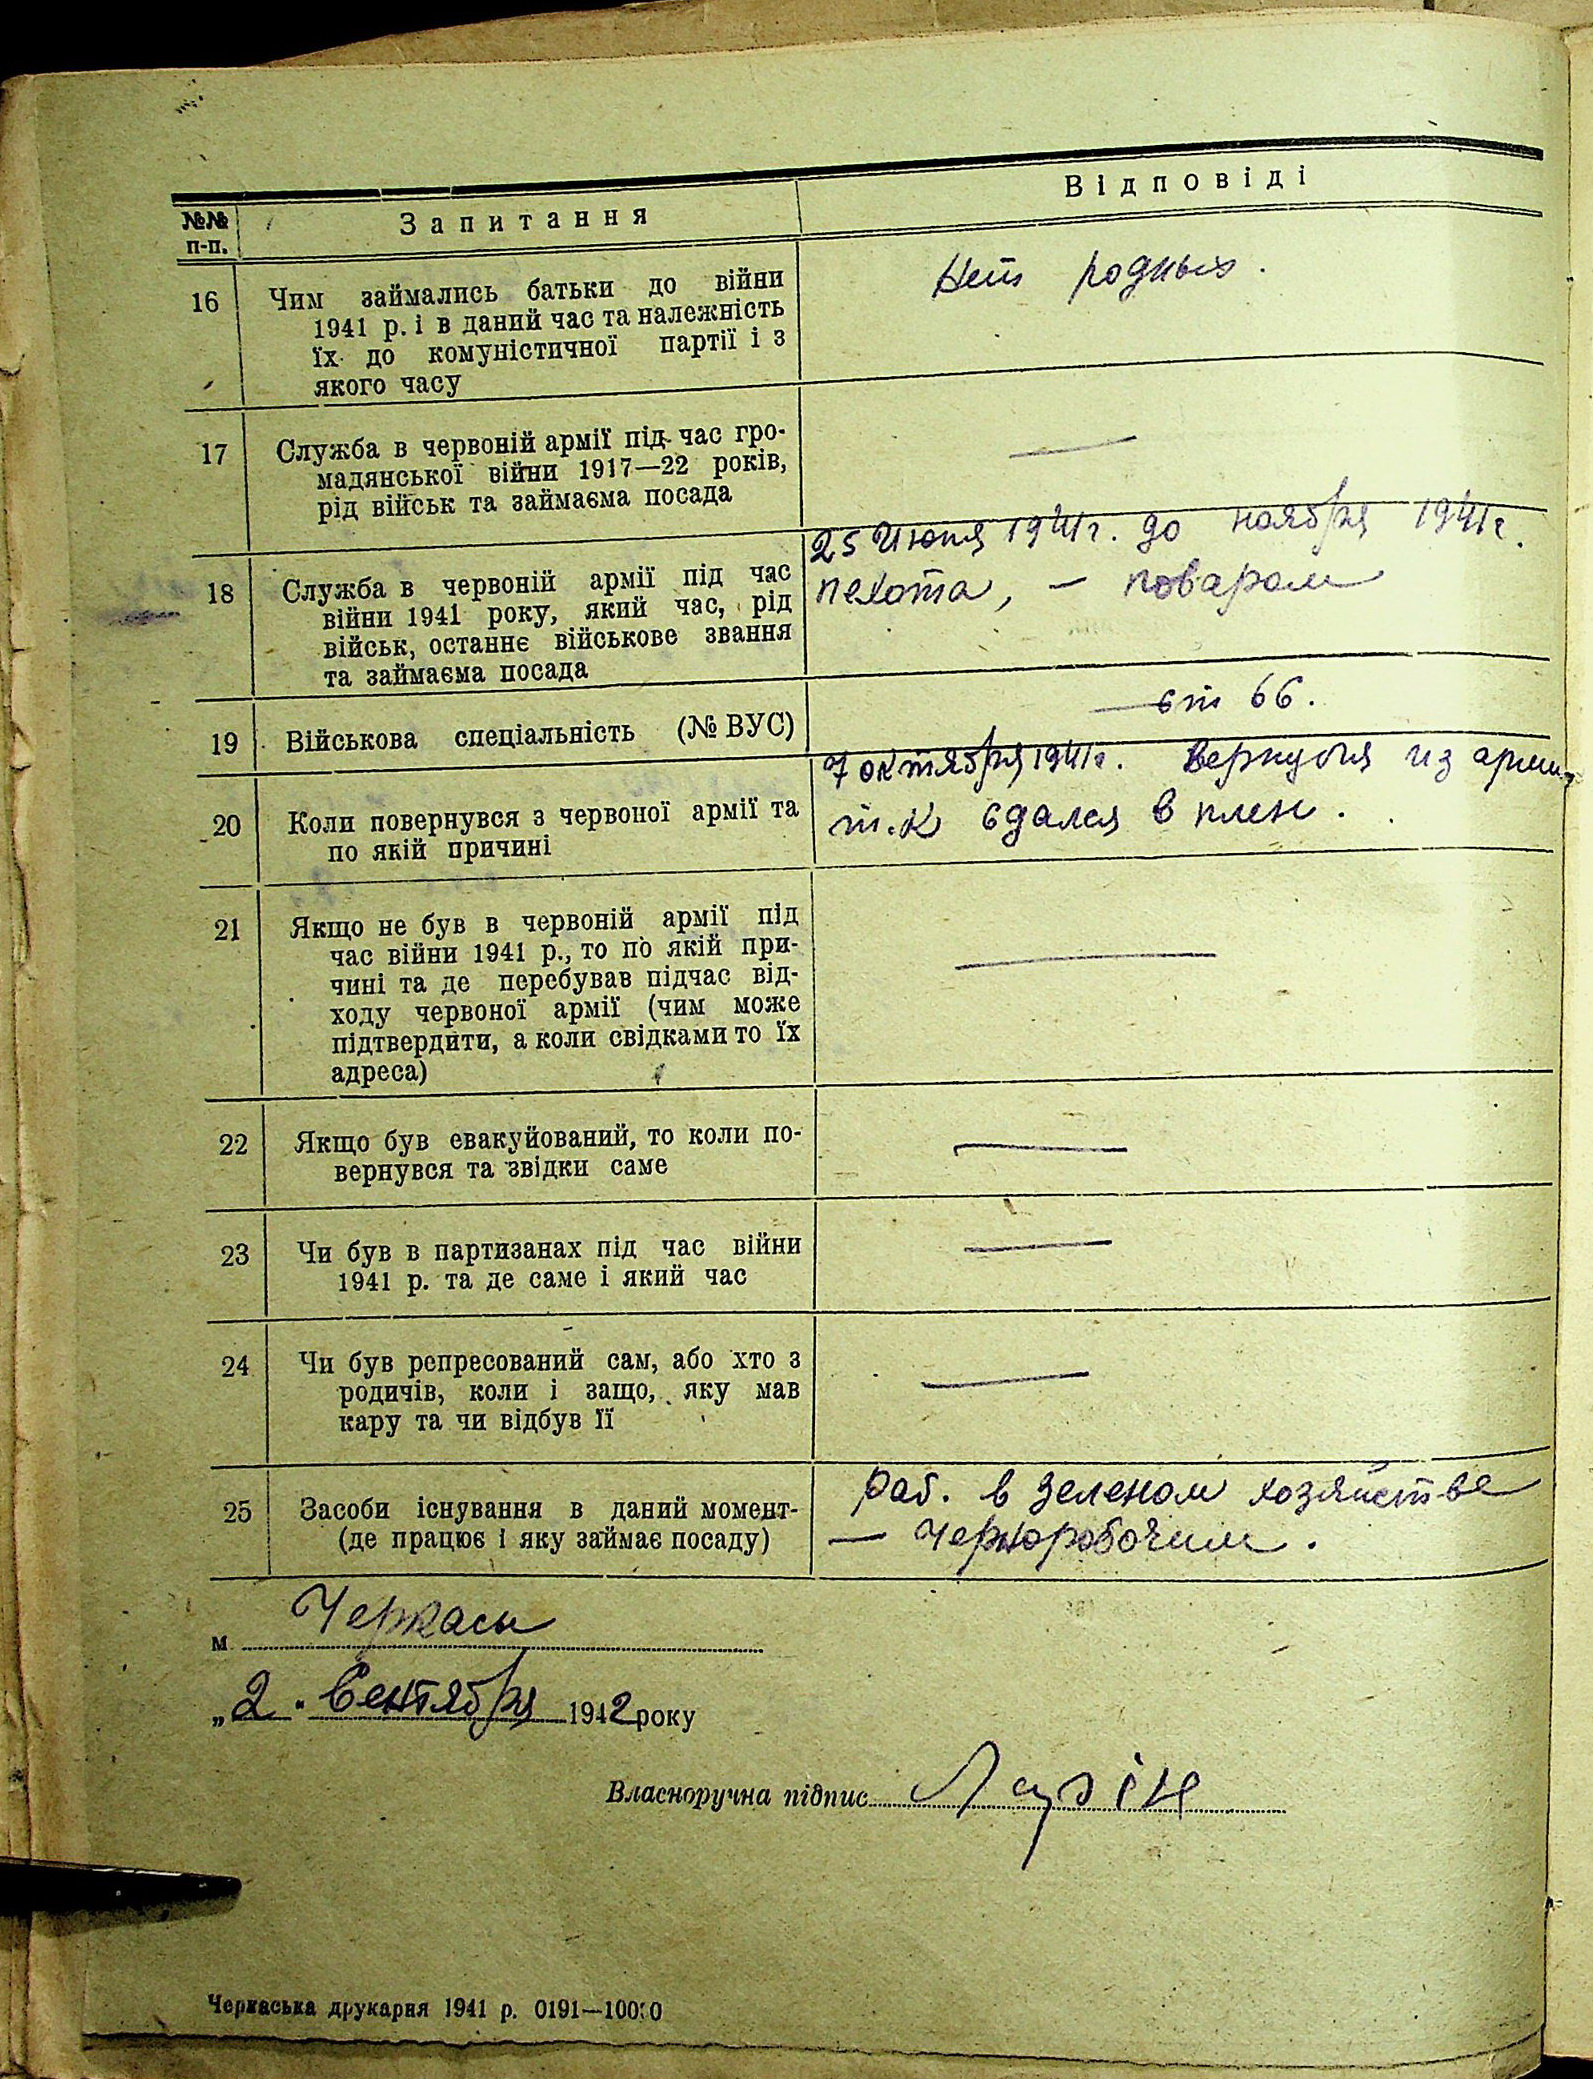 №№ п-п.
Запитання
Відповіді
16
Чим займались батьки до війни
1941 р. і в даний час та належність
їх до комуністичної партії і з
якого часу
Нет родных.
17
Служба в червоній армії під час гро-
мадянської війни 1917—22 років,
рід військ та займаєма посада
—
18
Служба в червоній армії під час
війни 1941 року, який час, рід
військ, останнє військове звання
та займаєма посада
25 Июня 1941 г. до ноября 1941 г.
пехота, — поваром
19
Військова спеціальність (№ ВУС)
ст 66.
20
Коли повернувся з червоної армії та
по якій причині
7 октября 1941 г. вернулся из армии,
т.к сдался в плен.
21
Якщо не був в червоній армії під
час війни 1941 р., то по якій при-
чині та де перебував підчас від-
ходу червоної армії (чим може
підтвердити, а коли свідками то їх
адреса)
—
22
Якщо був евакуйований, то коли по-
вернувся та звідки саме
—
23
Чи був в партизанах під час війни
1941 р. та де саме і який час
—
24
Чи був репресований сам, або хто з
родичів, коли і защо, яку мав
кару та чи відбув її
—
25
Засоби існування в даний момент-
(де працює і яку займає посаду)
Раб. в зеленом хозяйстве
— Чернорабочим.
м Черкасы
„2" Сентября 1942 року
Власноручна підпис
Черкаська друкарня 1941 р. 0191—10000